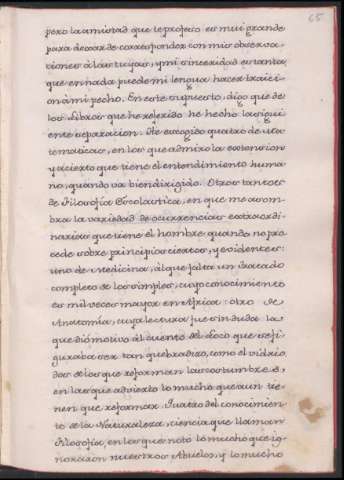 65
pero la amistad que te profeso es mui grande
para dexar de corresponder con mis observa
ciones à las tuyas, y mi sinceridad es tanta
que en nada puede mi lengua hacer traici
on à mi pecho. En este supuesto, digo que de
los Libros que he referido he hecho la sigui
ente separacion. He escogido quatro de Ma
tematicas, en los que admiro la extension
y acierto que tiene el entendimiento huma
no, quando va bien dirigido. Otros tantos
de Filosofia Escolastica, en que me asom
bra la variedad de ocurrencias extraordi
narias que tiene el hombre quando no pro
cede sobre principios ciertos, y evidentes:
uno de Medicina, al que falta un tratado
completo de los simples, cuyo conocimiento
es mil veces mayor en Africa: otro de
Anatomia, cuya lectura fue sin duda la
que dió motivo al cuento del Loco que se fi
guraba ser tan quebradizo, como el vidrio
dos de los que reforman las costumbres,
en las que advierto lo mucho que aun tie
nen que reformar. Quatro del conocimien
to de la Naturaleza, ciencia que llaman
Filosofia, en los que noto lo mucho que ig-
noraron nuestros Abuelos, y lo mucho